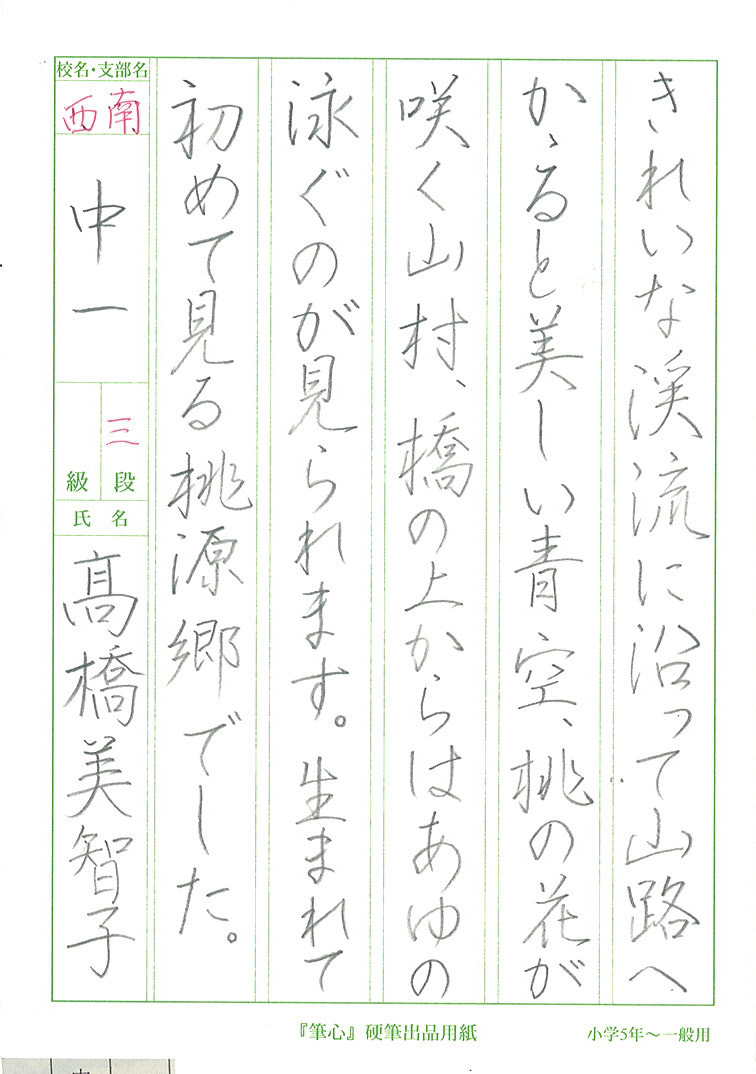 きれいな渓流に沿って山路へ
かゝると美しい青空、桃の花が
咲く山村、橋の上からはあゆの
泳ぐのが見られます。生まれて
初めて見る桃源郷でした。
校名・支部名
西南
中一
三
級 段
氏名
髙橋美智子
『筆心』硬筆出品用紙
小学5年〜一般用